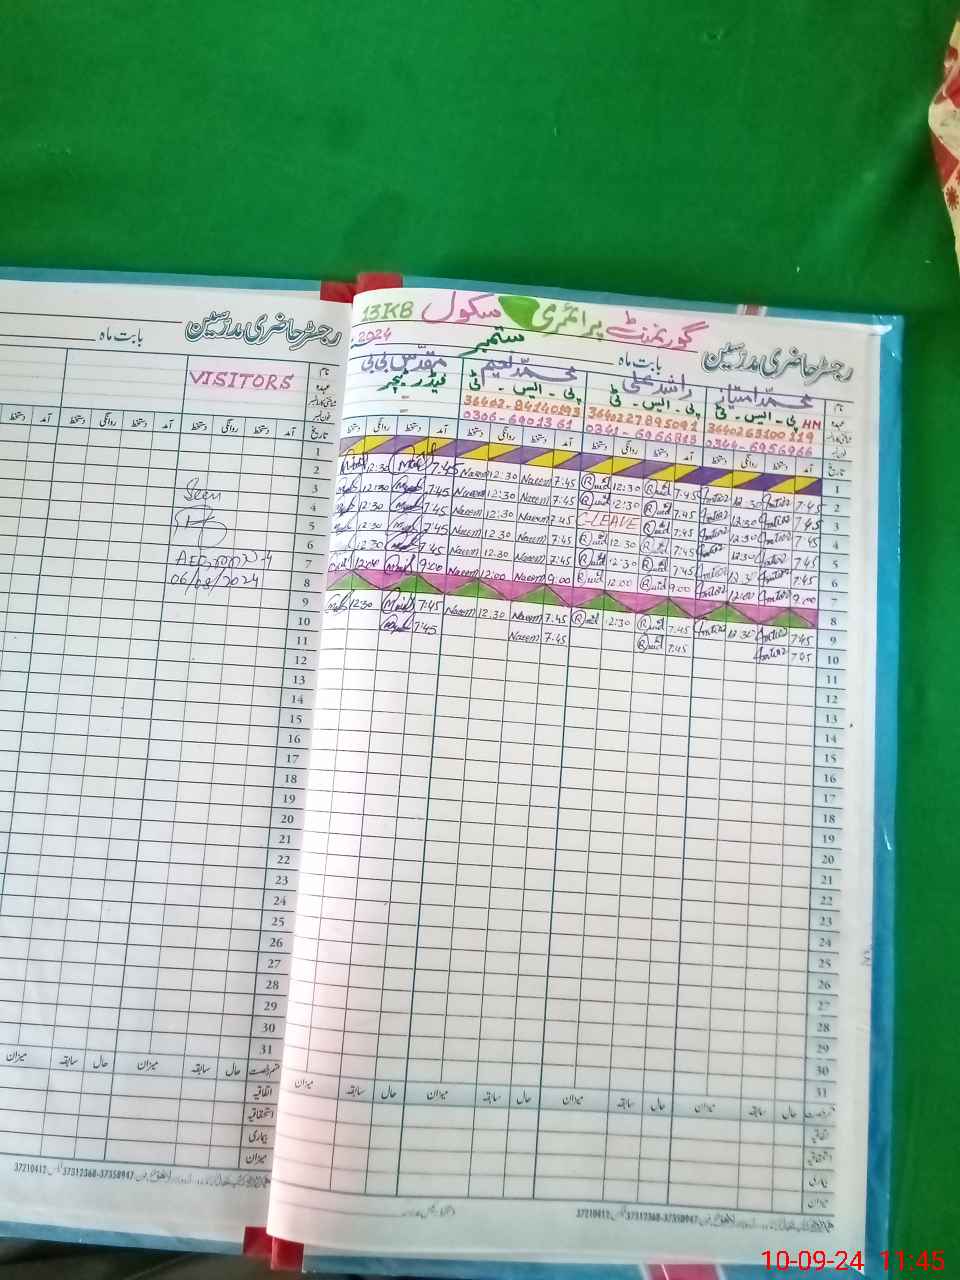 گورنمنٹ پرائمری سکول 13KB
رجسٹر حاضری مدرسین بابت ماہ ستمبر 2024
نام محمد امتیاز راشد علی محمد نعیم مقدس بی بی
عہدہ پی۔ایس۔ٹی HM پی۔ایس۔ٹی پی۔ایس۔ٹی فیڈر ٹیچر
3640263100119 3640227895091 36402-84140193 -
0344-6956966 0341-6966813 0306-6901361 -
تاریخ آمد دستخط روانگی دستخط آمد دستخط روانگی دستخط آمد دستخط روانگی دستخط آمد دستخط روانگی دستخط
1
2 7:45 12:30 7:45 12:30 7:45 Naeem 12:30 Naeem 7:45 12:30
3 7:45 12:30 7:45 12:30 7:45 Naeem 12:30 Naeem 7:45 12:30
4 7:45 12:30 C-LEAVE 7:45 Naeem 12:30 Naeem 7:45 12:30
5 7:45 12:30 7:45 12:30 7:45 Naeem 12:30 Naeem 7:45 12:30
6 7:45 12:30 7:45 12:30 7:45 Naeem 12:30 Naeem 7:45 12:30
7 9:00 12:00 9:00 12:00 9:00 Naeem 12:00 Naeem 9:00 12:00
8
9 7:45 12:30 7:45 12:30 7:45 Naeem 12:30 Naeem 7:45 12:30
10 7:45 7:45 7:45 Naeem 7:45
11
12
13
14
15
16
17
18
19
20
21
22
23
24
25
26
27
28
29
30
31
حال سابقہ میزان حال سابقہ میزان حال سابقہ میزان حال سابقہ میزان
اتفاقیہ
استحقاقیہ
بیماری
میزان
37210412 37312368-37358947
رجسٹر حاضری مدرسین
بابت ماہ
نام
VISITORS
عہدہ
فون نمبر
تاریخ آمد دستخط روانگی دستخط آمد دستخط روانگی دستخط آمد
1
2
3
4
5
6
7
8
9
10
11
12
13
14
15
16
17
18
19
20
21
22
23
24
25
26
27
28
29
30
31
Seen
06/08/2024
حال سابقہ میزان حال سابقہ میزان
اتفاقیہ
استحقاقیہ
بیماری
میزان
37210412 37312368-37358947
10-09-24 11:45